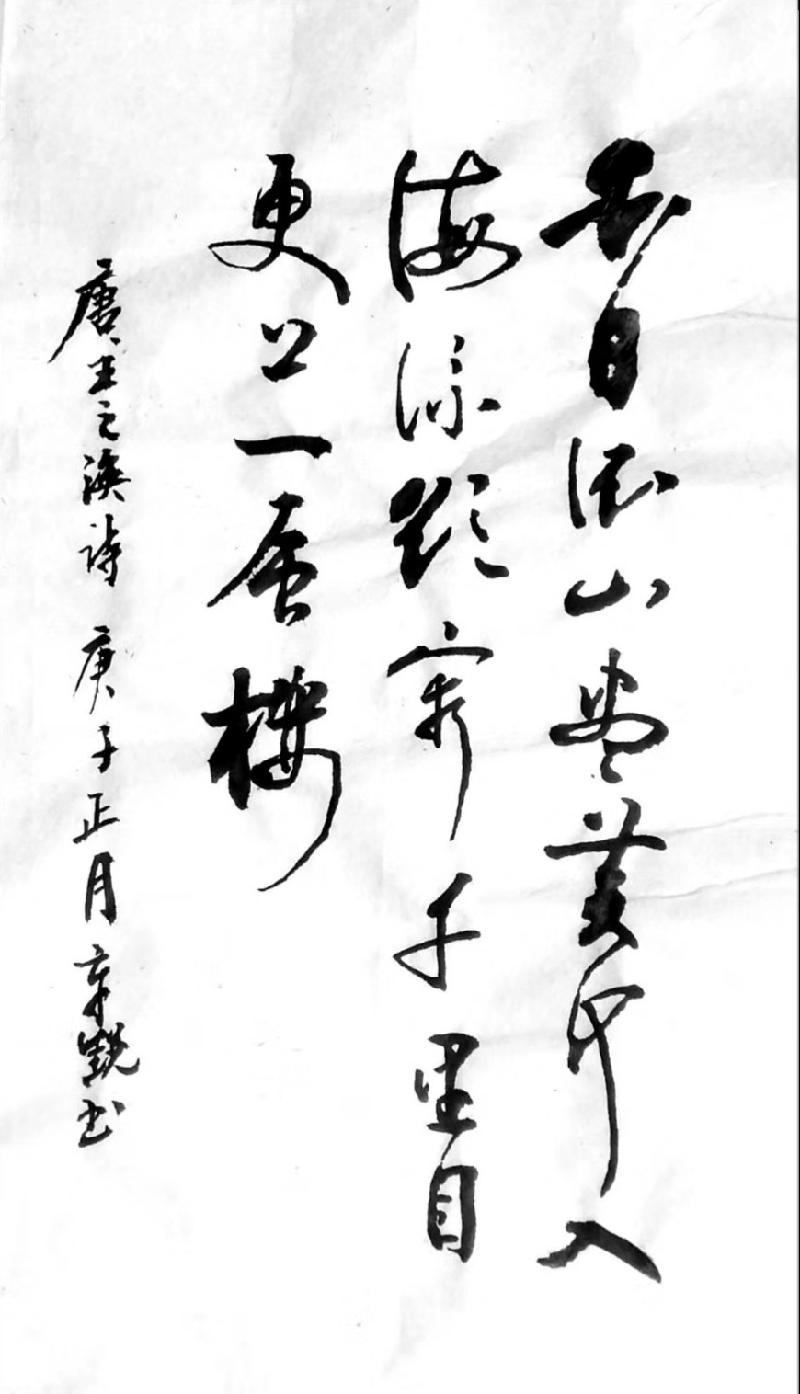 白日依山盡黄河入
海流欲窮千里目
更上一層樓
唐王之渙詩 庚子正月 书